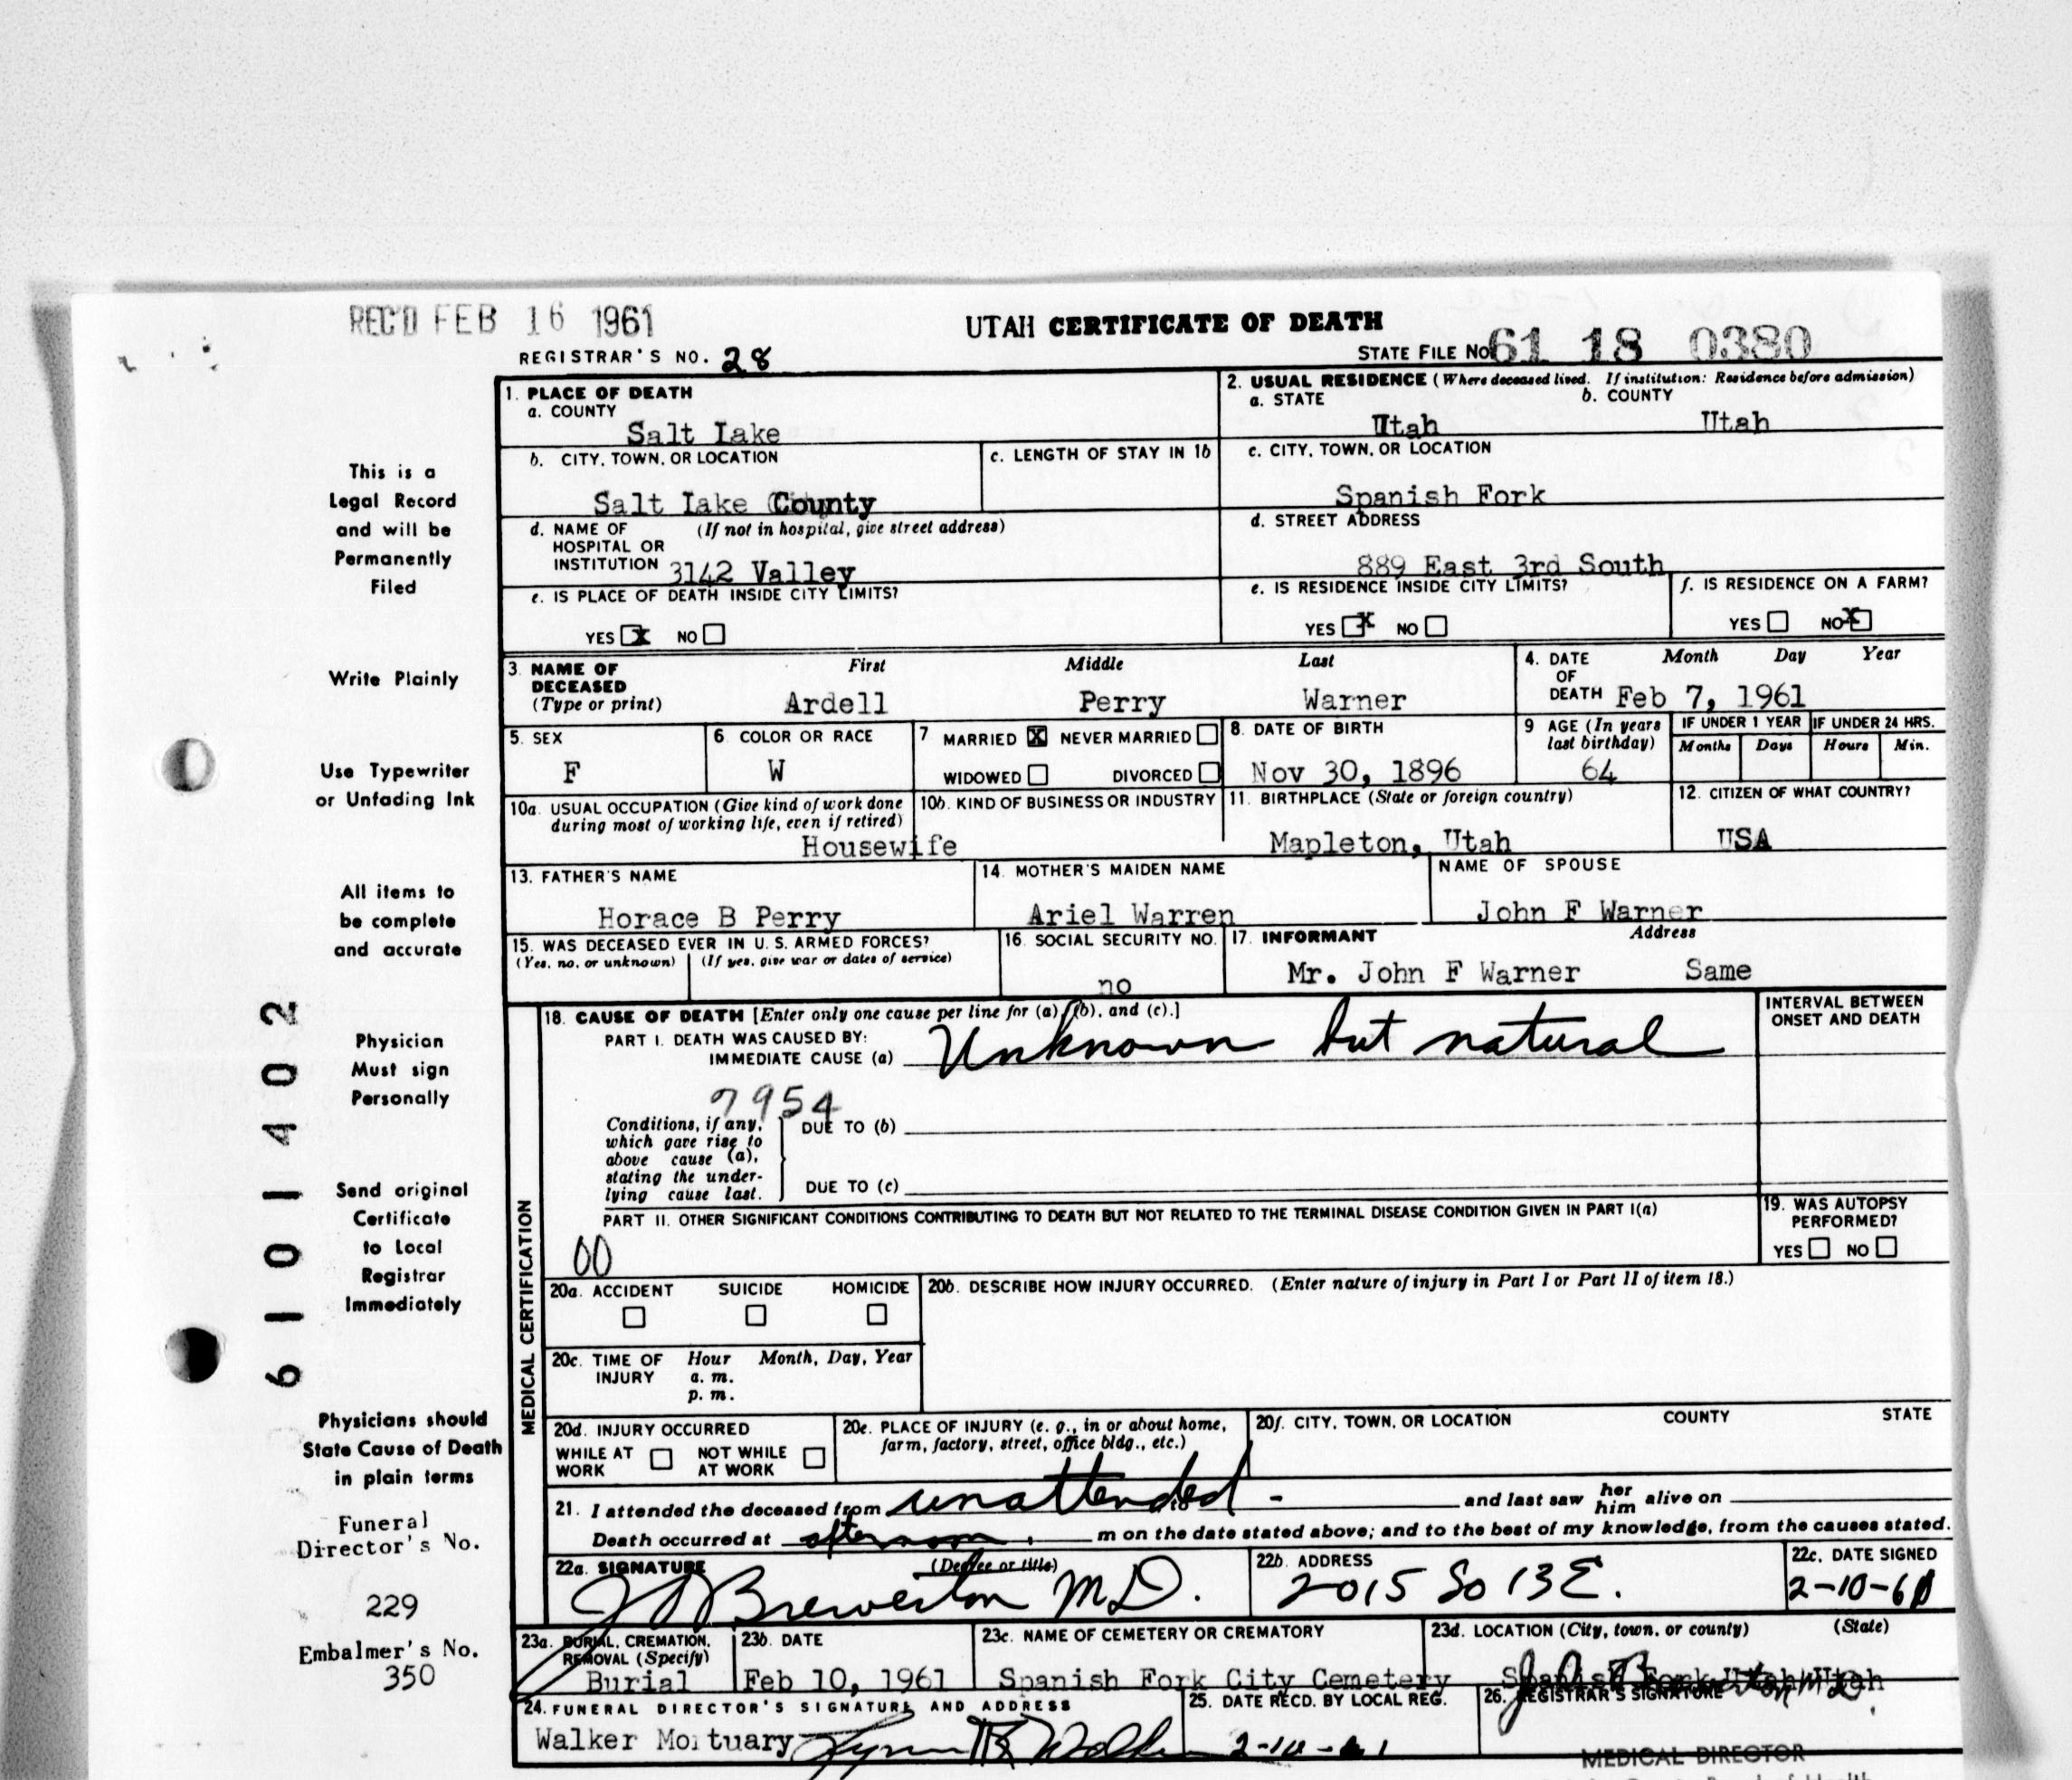 REC'D FEB 16 1961
UTAH CERTIFICATE OF DEATH
REGISTRAR'S NO. 28
STATE FILE NO. 61 18 0380
1. PLACE OF DEATH
a. COUNTY
Salt Lake
2. USUAL RESIDENCE (Where deceased lived. If institution: Residence before admission)
a. STATE b. COUNTY
Utah Utah
b. CITY, TOWN, OR LOCATION
Salt Lake County
c. LENGTH OF STAY IN 1b
c. CITY, TOWN, OR LOCATION
Spanish Fork
d. NAME OF (If not in hospital, give street address)
HOSPITAL OR
INSTITUTION 3142 Valley
d. STREET ADDRESS
889 East 3rd South
e. IS PLACE OF DEATH INSIDE CITY LIMITS?
YES x NO
e. IS RESIDENCE INSIDE CITY LIMITS?
YES x NO
f. IS RESIDENCE ON A FARM?
YES NO x
3. NAME OF DECEASED (Type or print)
First Middle Last
Ardell Perry Warner
4. DATE OF DEATH
Month Day Year
Feb 7, 1961
5. SEX
F
6. COLOR OR RACE
W
7 MARRIED X NEVER MARRIED
WIDOWED DIVORCED
8. DATE OF BIRTH
Nov 30, 1896
9 AGE (In years last birthday)
64
IF UNDER 1 YEAR IF UNDER 24 HRS.
Months Days Hours Min.
10a. USUAL OCCUPATION (Give kind of work done
during most of working life, even if retired)
Housewife
10b. KIND OF BUSINESS OR INDUSTRY
11. BIRTHPLACE (State or foreign country)
Mapleton, Utah
12. CITIZEN OF WHAT COUNTRY?
USA
13. FATHER'S NAME
Horace B Perry
14. MOTHER'S MAIDEN NAME
Ariel Warren
NAME OF SPOUSE
John F Warner
15. WAS DECEASED EVER IN U.S. ARMED FORCES?
(Yes, no, or unknown) (If yes, give war or dates of service)
16. SOCIAL SECURITY NO.
no
17. INFORMANT Address
Mr. John F Warner Same
MEDICAL CERTIFICATION
18. CAUSE OF DEATH [Enter only one cause per line for (a), (b), and (c).]
PART I. DEATH WAS CAUSED BY:
IMMEDIATE CAUSE (a) Unknown but natural
INTERVAL BETWEEN
ONSET AND DEATH
7954
Conditions, if any,
which gave rise to
above cause (a),
stating the under-
lying cause last.
DUE TO (b)
DUE TO (c)
PART II. OTHER SIGNIFICANT CONDITIONS CONTRIBUTING TO DEATH BUT NOT RELATED TO THE TERMINAL DISEASE CONDITION GIVEN IN PART I(a)
00
19. WAS AUTOPSY
PERFORMED?
YES NO
20a. ACCIDENT SUICIDE HOMICIDE
20b. DESCRIBE HOW INJURY OCCURRED. (Enter nature of injury in Part I or Part II of item 18.)
20c. TIME OF INJURY
Hour Month, Day, Year
a. m.
p. m.
20d. INJURY OCCURRED
WHILE AT WORK NOT WHILE AT WORK
20e. PLACE OF INJURY (e. g., in or about home,
farm, factory, street, office bldg., etc.)
20f. CITY, TOWN, OR LOCATION COUNTY STATE
21. I attended the deceased from unattended - and last saw her him alive on
Death occurred at afternoon m on the date stated above; and to the best of my knowledge, from the causes stated.
22a. SIGNATURE (Degree or title)
J D Brewerton M.D.
22b. ADDRESS
2015 So 13 E.
22c. DATE SIGNED
2-10-61
23a. BURIAL, CREMATION,
REMOVAL (Specify)
Burial
23b. DATE
Feb 10, 1961
23c. NAME OF CEMETERY OR CREMATORY
Spanish Fork City Cemetery
23d. LOCATION (City, town, or county) (State)
Spanish Fork Utah Utah
24. FUNERAL DIRECTOR'S SIGNATURE AND ADDRESS
Walker Mortuary
25. DATE RECD. BY LOCAL REG.
2-10-61
26. REGISTRAR'S SIGNATURE
MEDICAL DIRECTOR
This is a
Legal Record
and will be
Permanently
Filed
Write Plainly
Use Typewriter
or Unfading Ink
All items to
be complete
and accurate
Physician
Must sign
Personally
Send original
Certificate
to Local
Registrar
Immediately
Physicians should
State Cause of Death
in plain terms
Funeral
Director's No.
229
Embalmer's No.
350
6101402